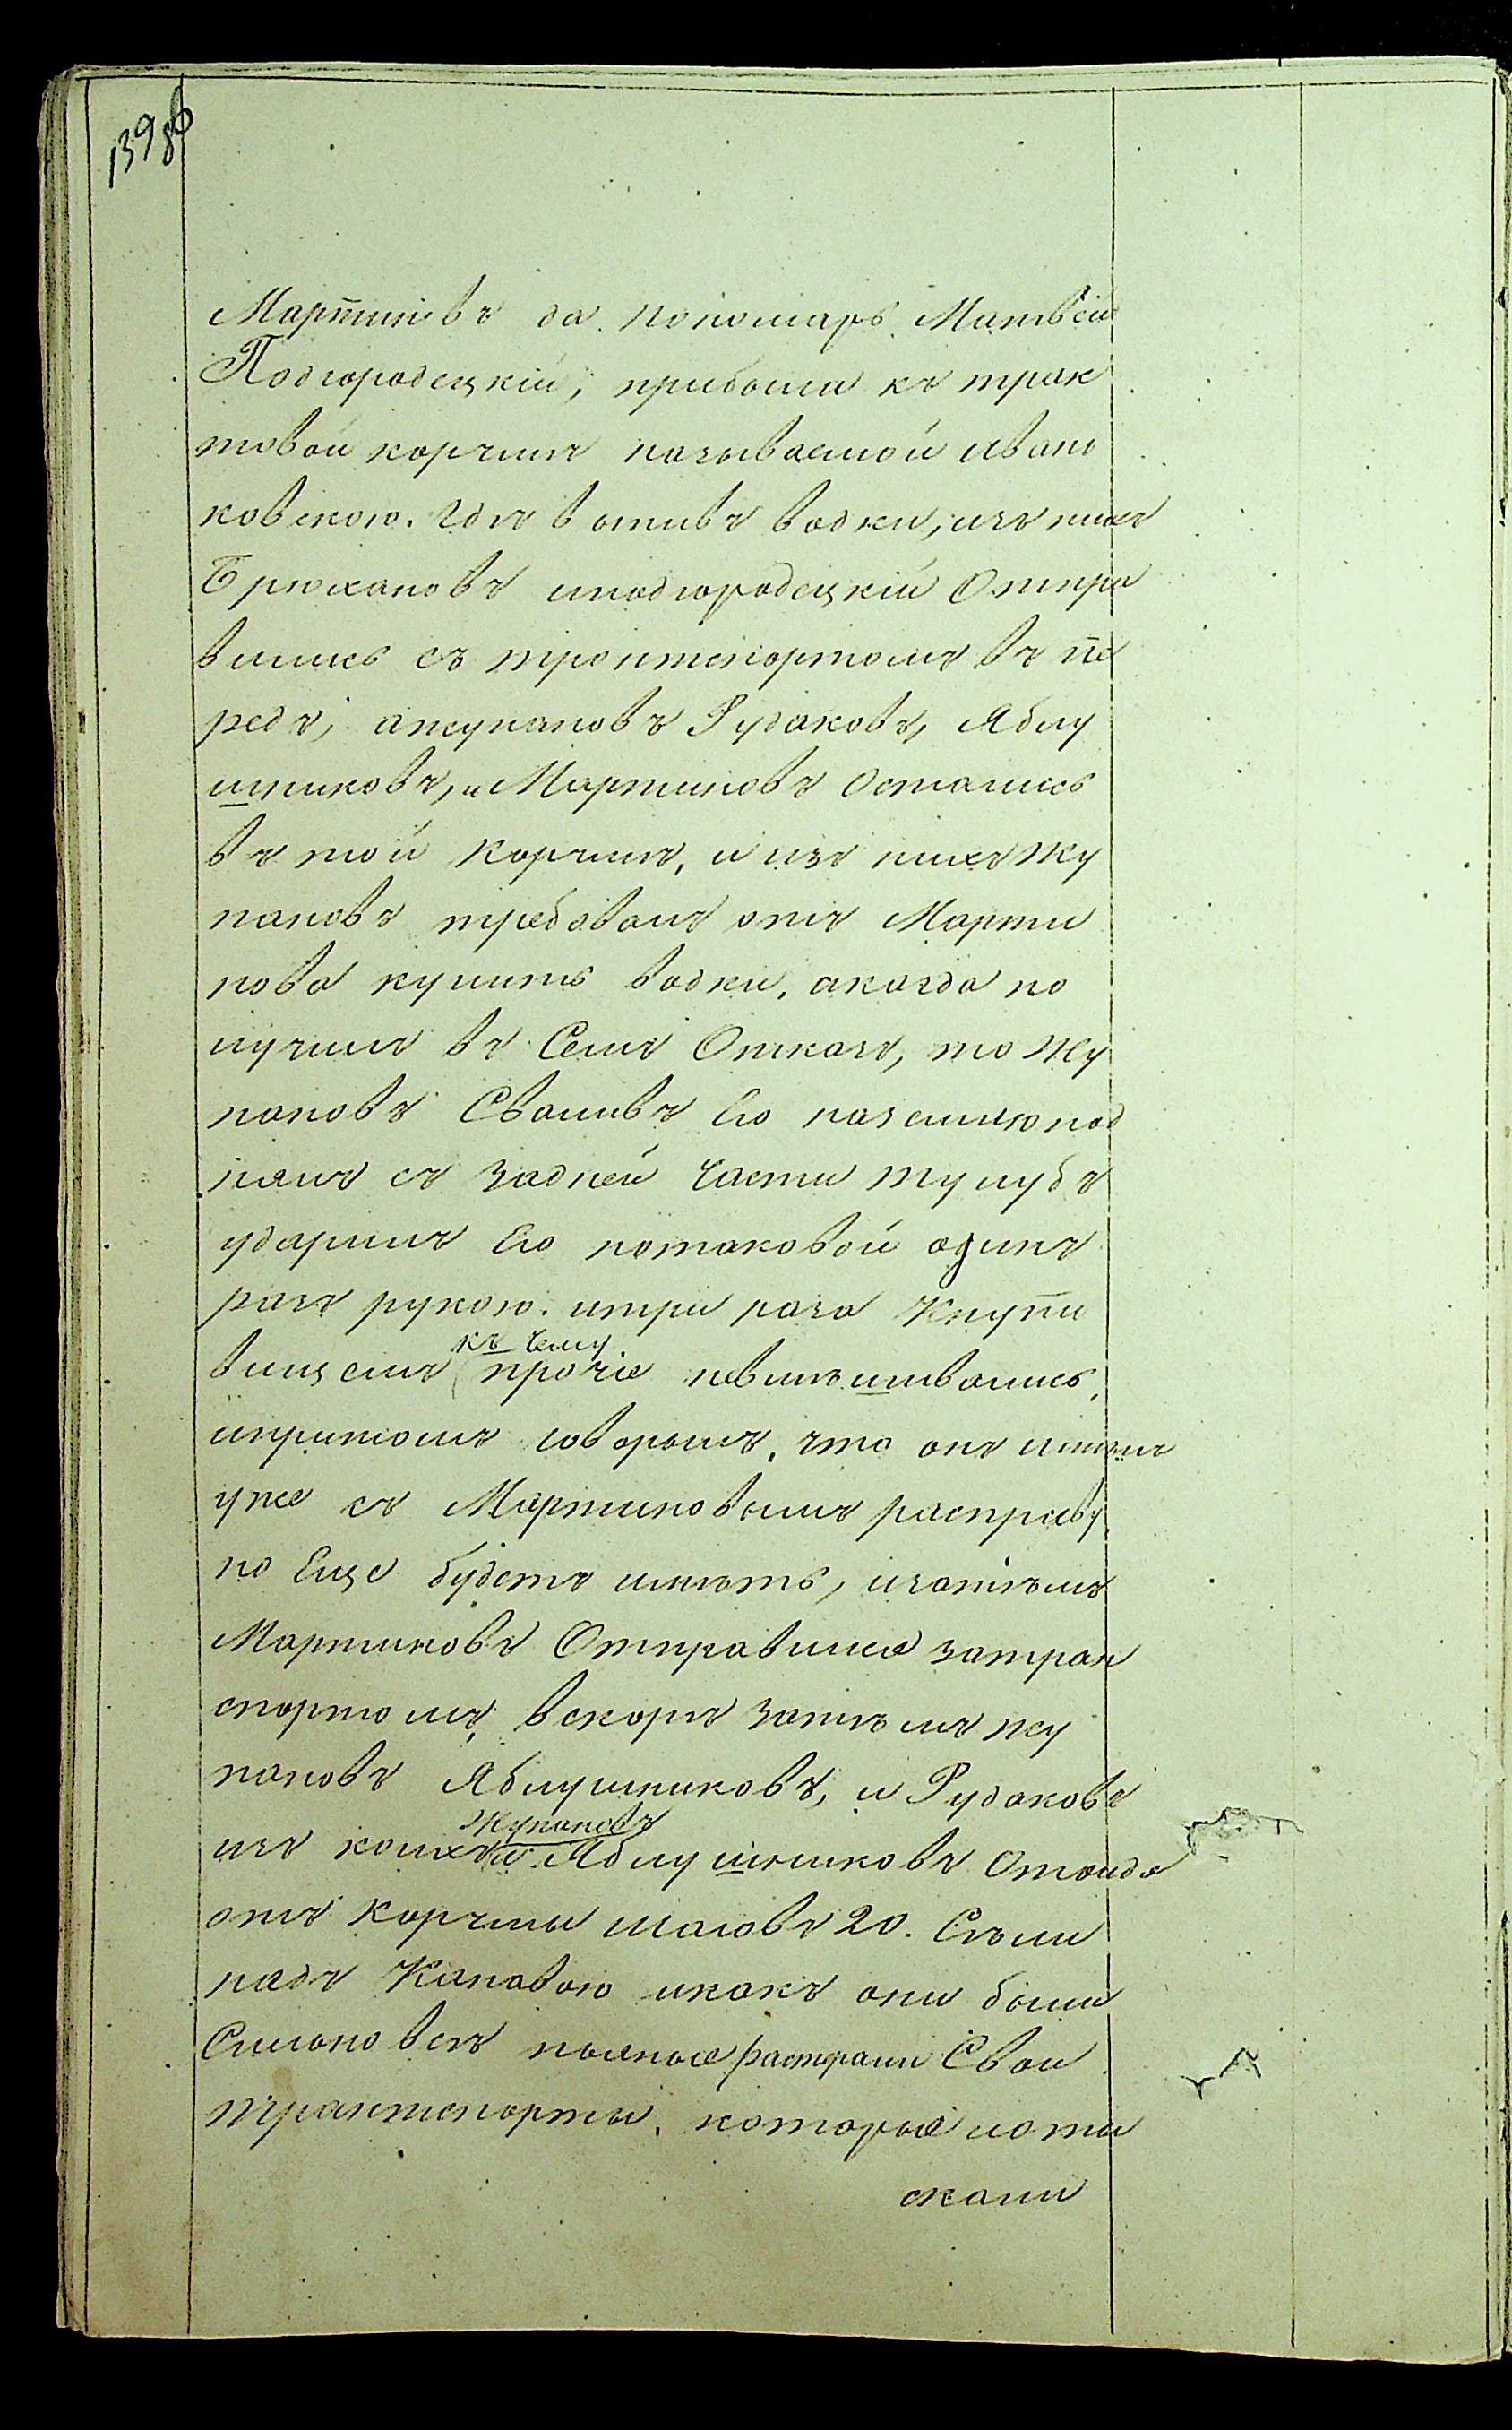 139 об
Мартиновъ да пономарь Матвей
Подгородецкій, прибыли къ трак
товой корчмѣ называемой ивань
ковскою. гдѣ выпивъ водки, изъ нихъ
Брюхановъ иподгородецкій Отпра
вились съ трантспортомъ въ пе
редъ, ажупановъ Рудаковъ, Яблу
шниковъ, и Мартиновъ Остались
въ той Корчмѣ, и изъ нихъ Жу
пановъ требовалъ отъ Марти
нова купить водки, акогда по
лучилъ въ Семъ Отказъ, то Жу
пановъ Сваливъ Его наземлю под
нялъ съ Задней Части тулубъ
ударилъ Его потаковой одинъ
разъ рукою. итри раза Кнути
вищемъ
къ Чему
прочіе невмѣшивались,
ипритомъ говорылъ, что онъ имѣлъ
уже съ Мартиновымъ расправу
но Еще будетъ имѣть, изатѣмъ
Мартиновъ Отправился затран
спортомъ, вскорѣ затѣмъ жу
пановъ Яблушниковъ, и Рудаковъ
Жупановъ
изъ коихъ и Яблушниковъ Отойдя
отъ Корчмы шаговъ 20. Сѣли
надъ Канавою икакъ они были
Сильно всѣ пьяные растеряли Свои
трантспорты, которые поты
скали